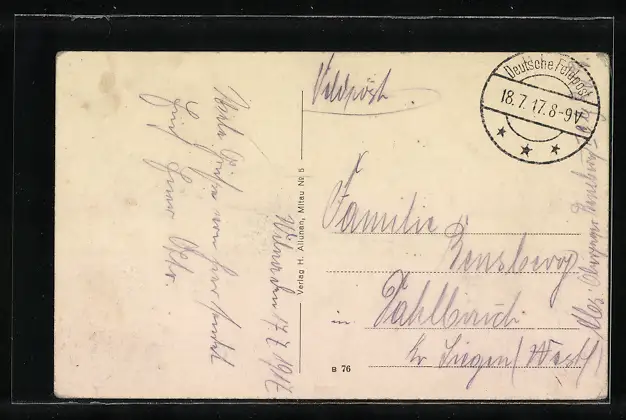 Feldpost
Deutsche Feldpost
18.7.17.8-9V
* * *
Wilna den 17.7.1917.
Viele Grüße von hier sendet
Euch Euer Otto.
Verlag H. Allunan, Mitau № 5
Familie
Rensberg
in Dahlbruch
Kr Siegen (Westf)
Abs:
B 76